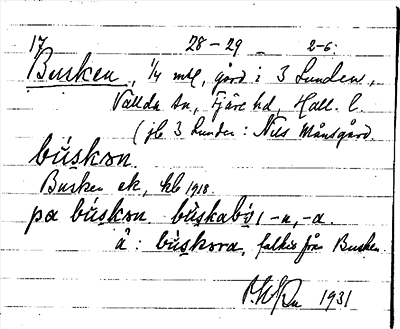 17 28-29 - 2-6.
Busken, 1/4 mtl, gård i 3 Lunden,
Vallda sn, Fjäre hd, Hall. l.
(jfr 3 Lunden: Nils Månsgård.
búskən.
Busken ek, kb 1918.
pa búskən búskabó, -n, -a.
å: búskəra, folket från Busken.
1931